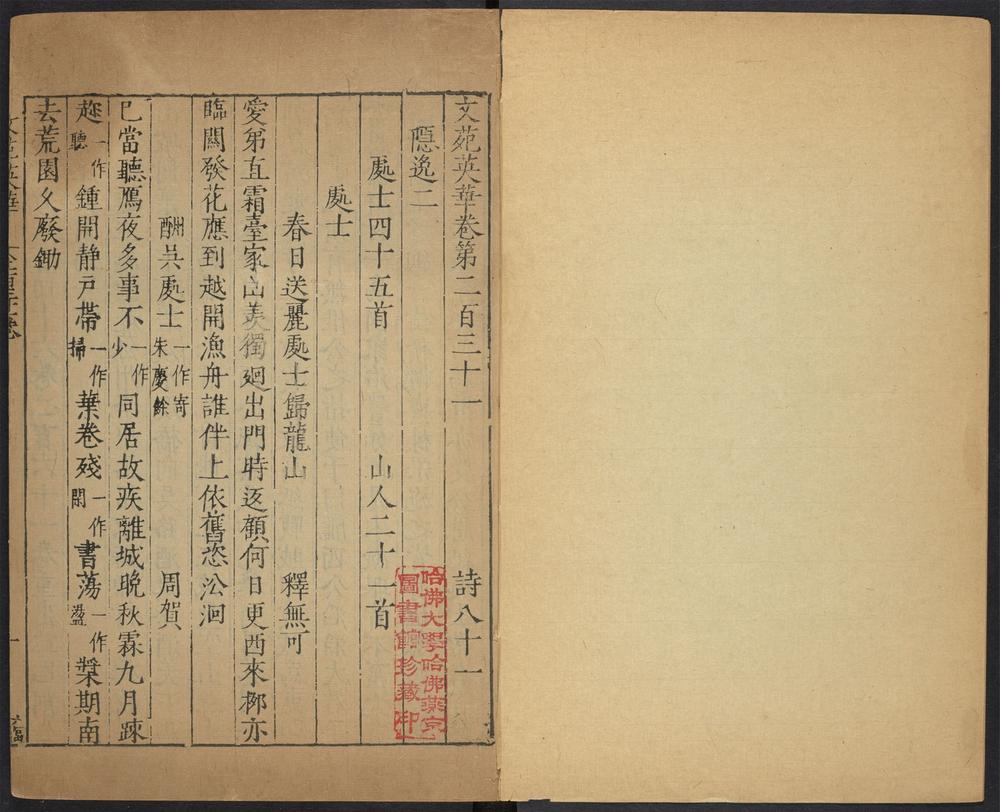 文苑英華卷第二百三十一　詩八十一
隱逸二
處士四十五首　山人二十一首
處士
春日送麗處士歸龍山　釋無可
愛弟直霜臺家山羡獨廻出門時返顧何日更西來郷亦
臨關發花應到越開漁舟誰伴上依舊恣㳂洄
酬吳處士一作寄朱慶餘　周賀
已當聽鴈夜多事不一作少同居故疾離城晚秋霖九月踈
趂一作聽鍾開静戸帶一作掃葉卷殘一作閑書蕩一作盪槳期南
去荒園乆廢鋤
哈佛大學哈佛燕京
圖書館珍藏印